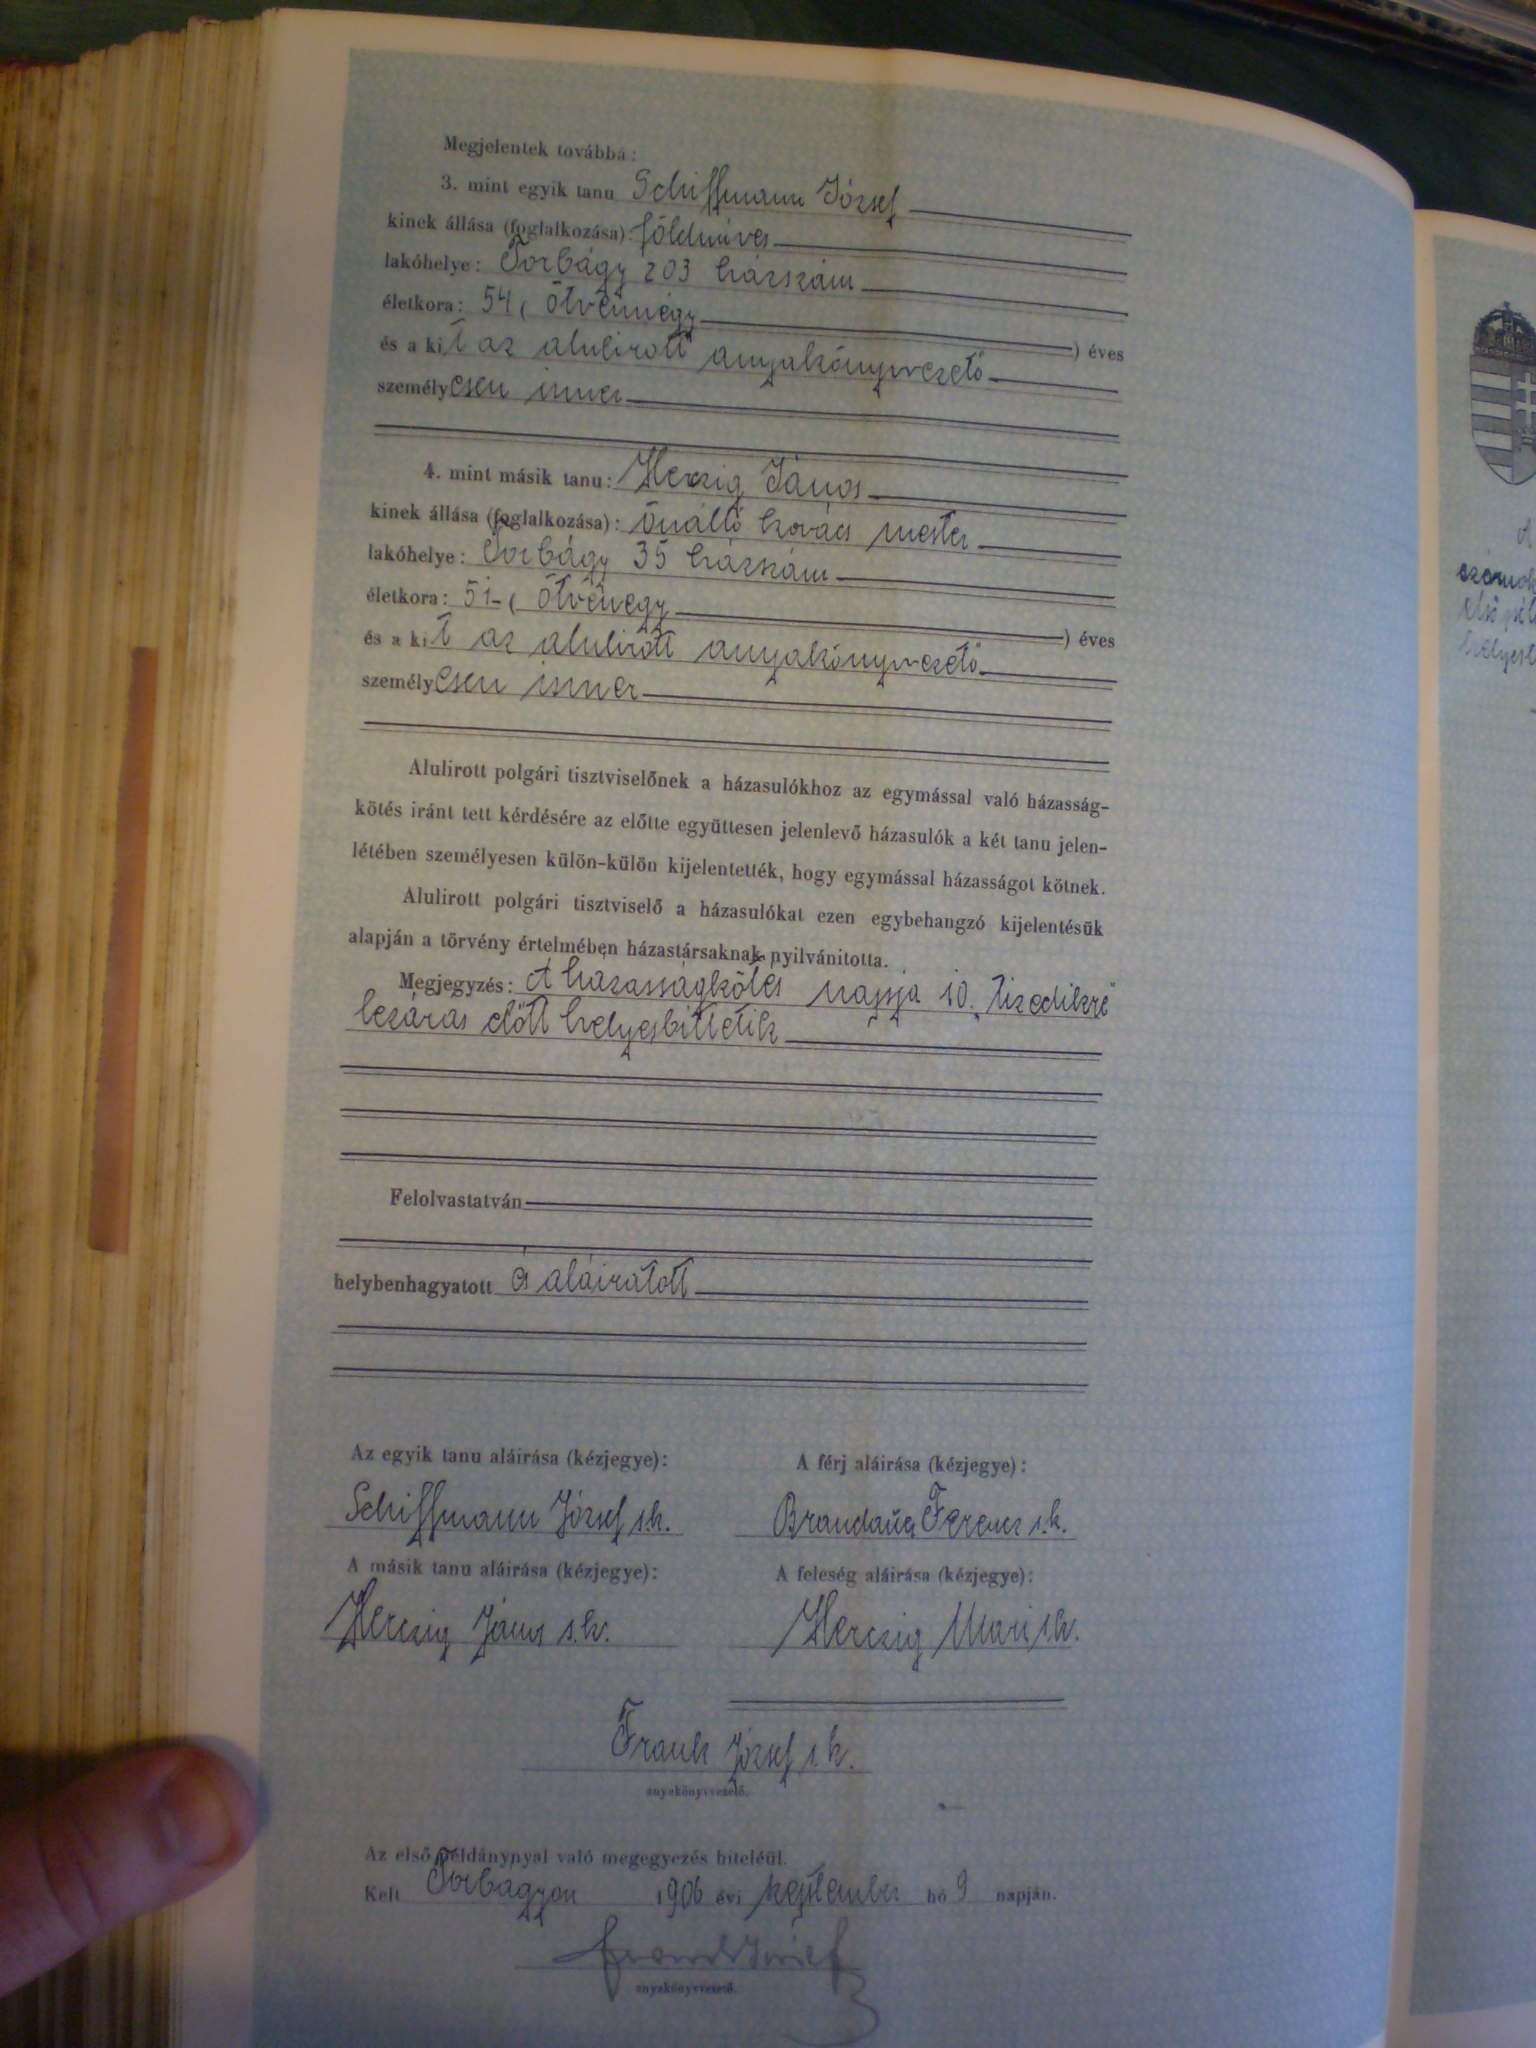 Megjelentek továbbá:
3. mint egyik tanu Schiffmann József
kinek állása (foglalkozása): földmives
lakóhelye: Torbágy 203 házszám
életkora: 54 ( ötvennégy ) éves
és a kit az alulirott anyakönyvvezető
személyesen ismer
4. mint másik tanu: Herczig János
kinek állása (foglalkozása): önálló kovács mester
lakóhelye: Torbágy 35 házszám
életkora: 51 ( ötvenegy ) éves
és a kit az alulirott anyakönyvvezető
személyesen ismer
Alulirott polgári tisztviselőnek a házasulókhoz az egymással való házasság-
kötés iránt tett kérdésére az előtte együttesen jelenlevő házasulók a két tanu jelen-
létében személyesen külön-külön kijelentették, hogy egymással házasságot kötnek.
Alulirott polgári tisztviselő a házasulókat ezen egybehangzó kijelentésük
alapján a törvény értelmében házastársaknak nyilvánitotta.
Megjegyzés: A házasságkötés napja 10. tizedikre
lezárás előtt helyesbittetik
Felolvastatván
helybenhagyatott és aláiratott
Az egyik tanu aláirása (kézjegye): A férj aláirása (kézjegye):
Schiffmann József s.k. Brandauer Ferencz s.k.
A másik tanu aláirása (kézjegye): A feleség aláirása (kézjegye):
Herczig János s.k. Herczig Mari s.k.
Frank József s.k.
anyakönyvvezető.
Az első példánynyal való megegyezés hiteléül.
Kelt Torbágyon 1906 évi szeptember hó 9 napján.
Frank József
anyakönyvvezető.